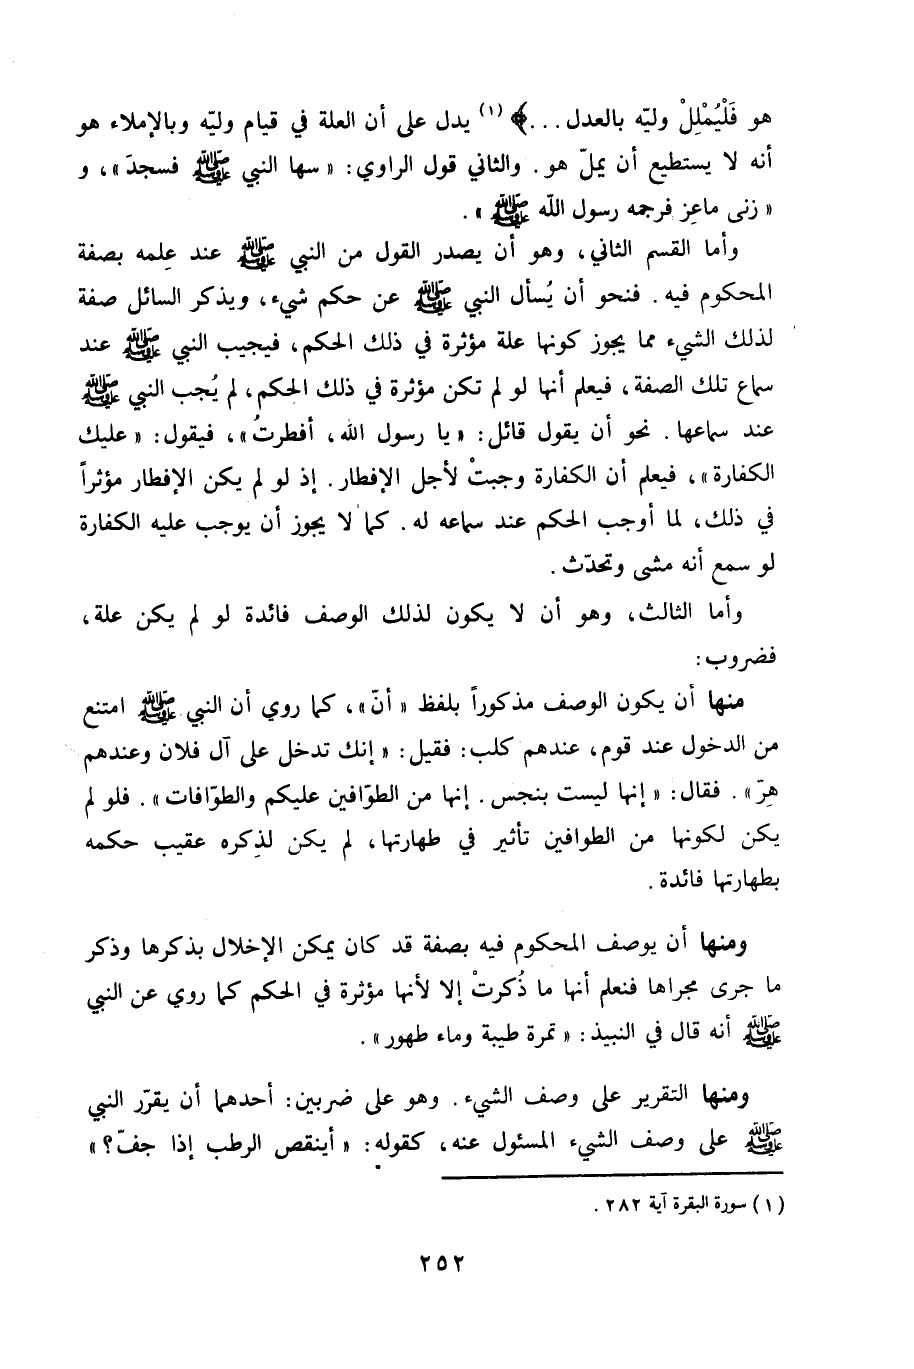 هو فَلْيُمْلِلْ وليّه بالعدل . . .﴾ (١) يدل على أن العلة في قيام وليّه وبالإملاء هو
أنه لا يستطيع أن يملّ هو . والثاني قول الراوي : « سها النبي ﷺ فسجدَ » ، و
« زنى ماعِز فرجمه رسول اللّه ﷺ » .
وأما القسم الثاني ، وهو أن يصدر القول من النبي ﷺ عند عِلمه بصفة
المحكوم فيه . فنحو أن يُسأل النبي ﷺ عن حكم شيء ، ويذكر السائل صفة
لذلك الشيء مما يجوز كونها علة مؤثرة في ذلك الحكم ، فيجيب النبي ﷺ عند
سماع تلك الصفة ، فيعلم أنها لو لم تكن مؤثرة في ذلك الحكم ، لم يُجب النبي ﷺ
عند سماعها . نحو أن يقول قائل : « يا رسول الله ، أفطرتُ » ، فيقول : « عليك
الكفارة » ، فيعلم أن الكفارة وجبتْ لأجل الإفطار . إذ لو لم يكن الإفطار مؤثراً
في ذلك ، لما أوجب الحكم عند سماعه له . كما لا يجوز أن يوجب عليه الكفارة
لو سمع أنه مشى وتحدّث .
وأما الثالث ، وهو أن لا يكون لذلك الوصف فائدة لو لم يكن علة ،
فضروب :
منها أن يكون الوصف مذكوراً بلفظ « أنّ » ، كما روي أن النبي ﷺ امتنع
من الدخول عند قوم ، عندهم كلب : فقيل : « إنك تدخل على آل فلان وعندهم
هِرّ » . فقال : « إنها ليست بنجس . إنها من الطوّافين عليكم والطوّافات » . فلو لم
يكن لكونها من الطوافين تأثير في طهارتها ، لم يكن لذِكره عقيب حكمه
بطهارتها فائدة .
ومنها أن يوصف المحكوم فيه بصفة قد كان يمكن الإخلال بذكرها وذكر
ما جرى مجراها فنعلم أنها ما ذُكرتْ إلا لأنها مؤثرة في الحكم كما روي عن النبي
ﷺ أنه قال في النبيذ : « تمرة طيبة وماء طهور » .
ومنها التقرير على وصف الشيء . وهو على ضربين : أحدهما أن يقرّر النبي
ﷺ على وصف الشيء المسئول عنه ، كقوله : « أينقص الرطب إذا جفّ ؟ »
( ١ ) سورة البقرة آية ٢٨٢ .
٢٥٢